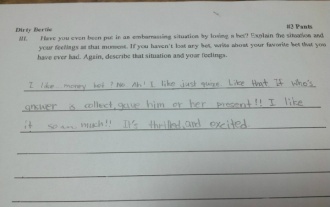 Dirty Bertie #2 Pants
01. Have you even been put in an embarrassing situation by losing a bet? Explain the situation and
your feelings at that moment. If you haven't lost any bet, write about your favorite bet that you
have ever had. Again, describe that situation and your feelings.
I like money bet! No Ah! I like just guys. Like that If who's
answer is collect, gave him or her present!! I like
it so much!! It's thrilled, and excited.